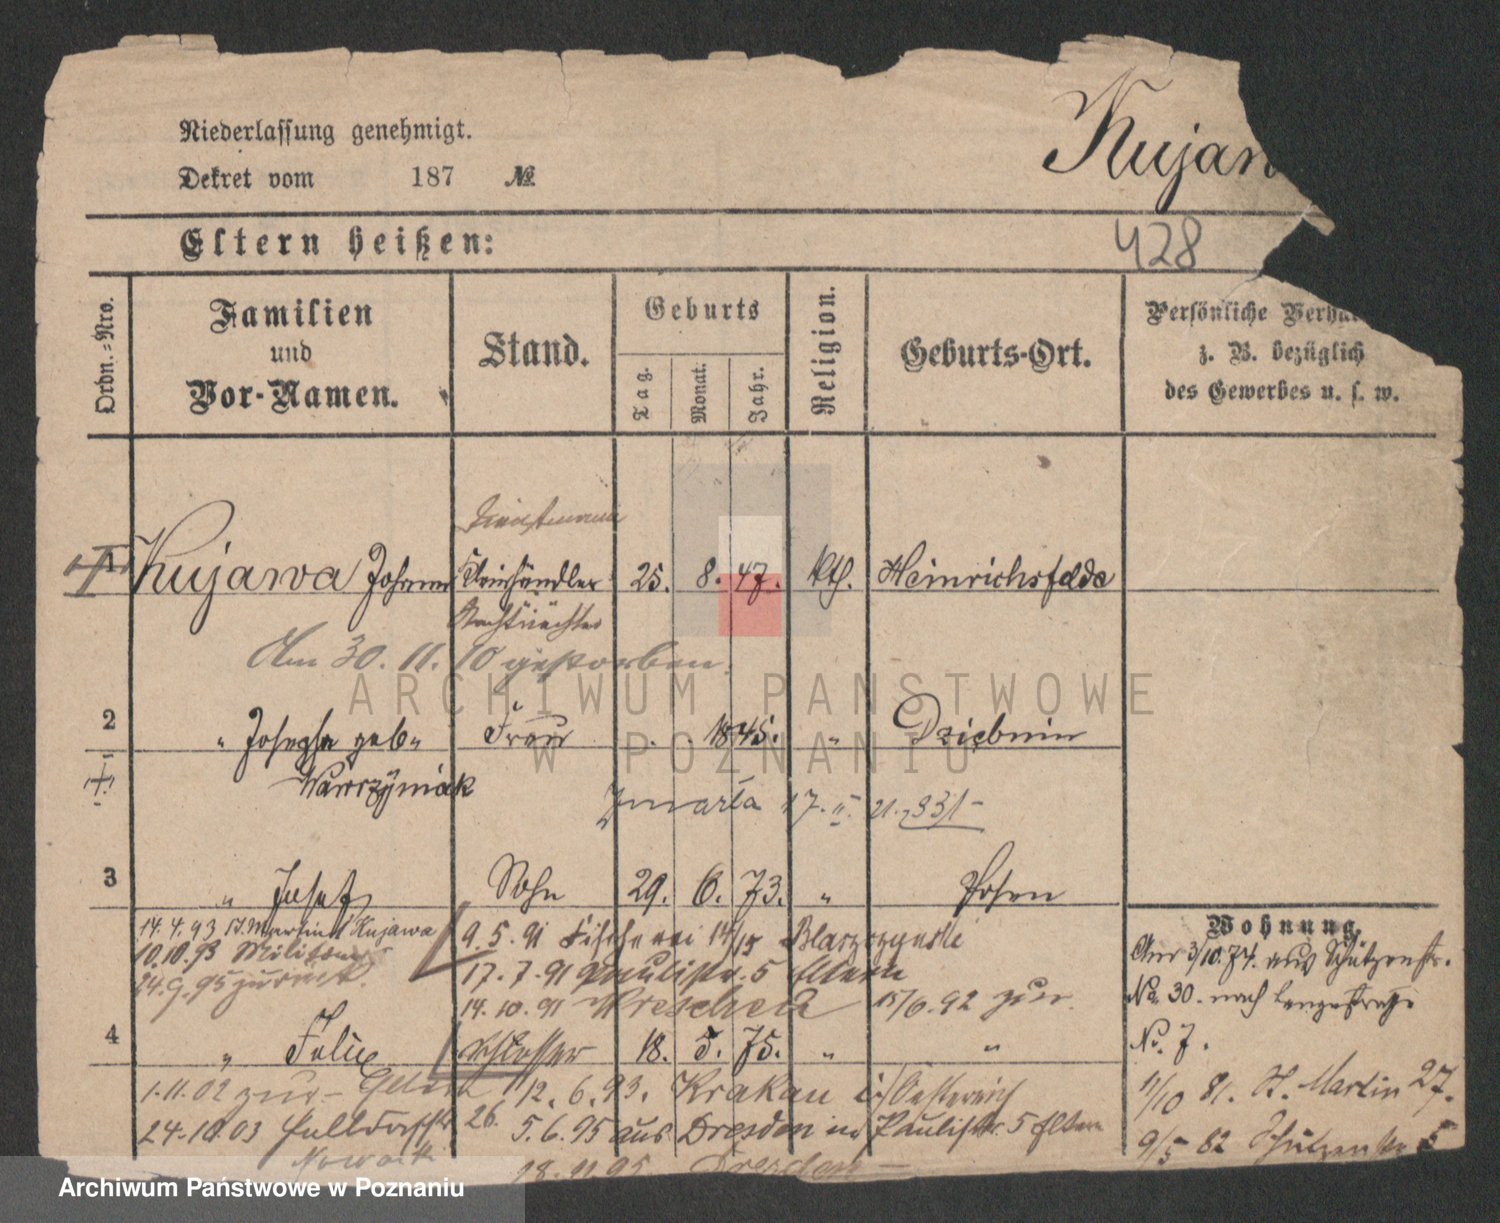 Niederlassung genehmigt.
Dekret vom 187 №
Kujaw
428
Eltern heißen:
Ordn.-Nro.
Familien und Vor-Namen.
Stand.
Geburts
Tag.
Monat.
Jahr.
Religion.
Geburts-Ort.
Persönliche Verhä
z. B. bezüglich
des Gewerbes u. s. w.
Dienstmann
1 Kujawa Johann 25. 8. 47. kth. Heinrichsfelde
Am 30. 11. 10 gestorben.
2 " Josepha geb. Frau 1845. " Dziebnin
Wawrzyniak
Zmarła 17. II. 21.
3 " Josef Sohn 29. 6. 73. " Posen
14. 4. 93 St. Martin Kujawa
10.10.93 Militär
24.9.95 zurück.
9. 5. 91 Fischerei 14/15 Blaszczynski
17. 7. 91 Paulistr. 5 Eltern
14. 10. 91 Wreschen 15/6. 92 zur.
4 " Felix Schlosser 18. 5. 75. " "
1.11.02 zur
24.10.03
Nowack
12. 6. 93. Krakau i/Oesterreich
26. 5. 6. 95 aus Dresden Paulistr. 5 Eltern
18. 11 95 Dresden
Wohnung.
Am 3/10. 74. aus Schützenstr.
No. 30. nach Langestraße
No. 7.
11/10 81. St. Martin 27.
9/5 82 Schützenstr 5
ARCHIWUM PAŃSTWOWE
W POZNANIU
Archiwum Państwowe w Poznaniu